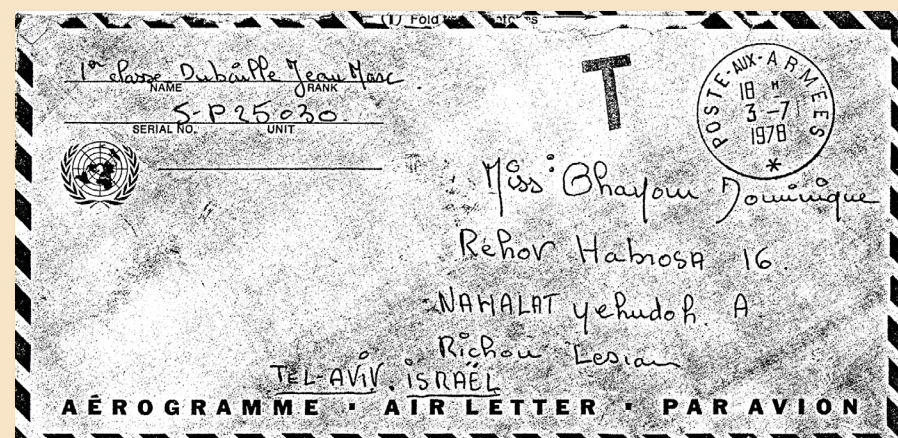 (1) Fold
1er classe Dubaille Jean Marc
NAME RANK
S-P 25030.
SERIAL NO. UNIT
T
POSTE-AUX-ARMEES
18 H
3-7
1978
*
Miss Ghayom Dominique
Réhov Habrosa 16.
NAHALAT yehudoh. A.
Richon Lesian
TEL-AVIV. iSRAËL
AÉROGRAMME · AIR LETTER · PAR AVION